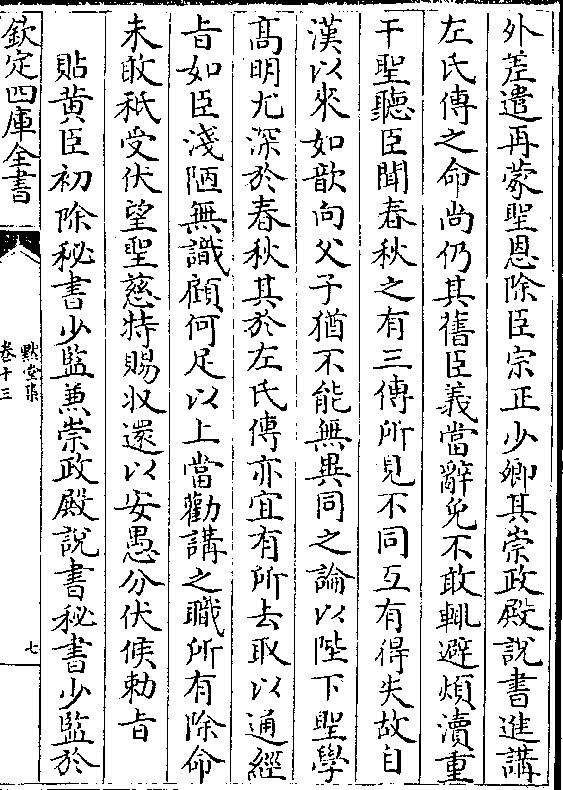 外差遣再蒙聖恩除臣宗正少卿其崇政殿說書進講
左氏傳之命尚仍其舊臣義當辭免不敢輒避煩瀆重
干聖聽臣聞春秋之有三傳所見不同互有得失故自
漢以來如歆向父子猶不能無異同之論以陛下聖學
髙明尤深於春秋其於左氏傳亦宜有所去取以通經
㫖如臣淺陋無識顧何足以上當勸講之職所有除命
未敢秪受伏望聖慈特賜收還以安愚分伏候勅㫖
貼黄臣初除秘書少監兼崇政殿說書秘書少監於
欽定四庫全書
默堂集
卷十三
七